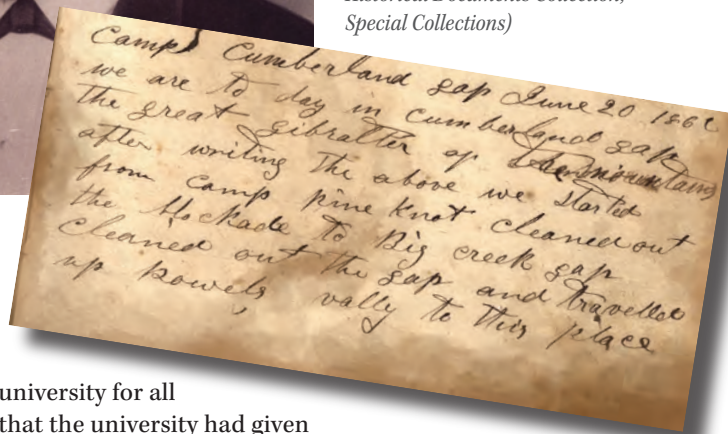 Special Collections)
Camp Cumberland gap June 20 1862
we are to day in Cumberland gap
the great Gibralter of the mountains
after writing the above we started
from Camp pine Knot cleaned out
the blockade to Big creek gap
cleaned out the gap and travelled
up powels vally to this place
university for all
that the university had given